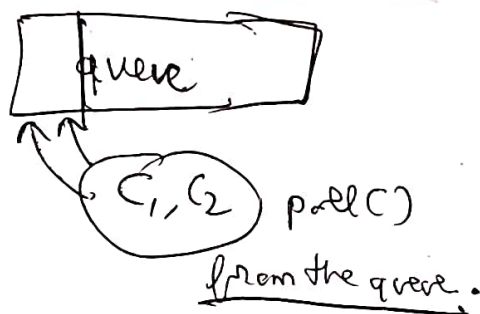 queue
C1, C2 poll()
from the queue.